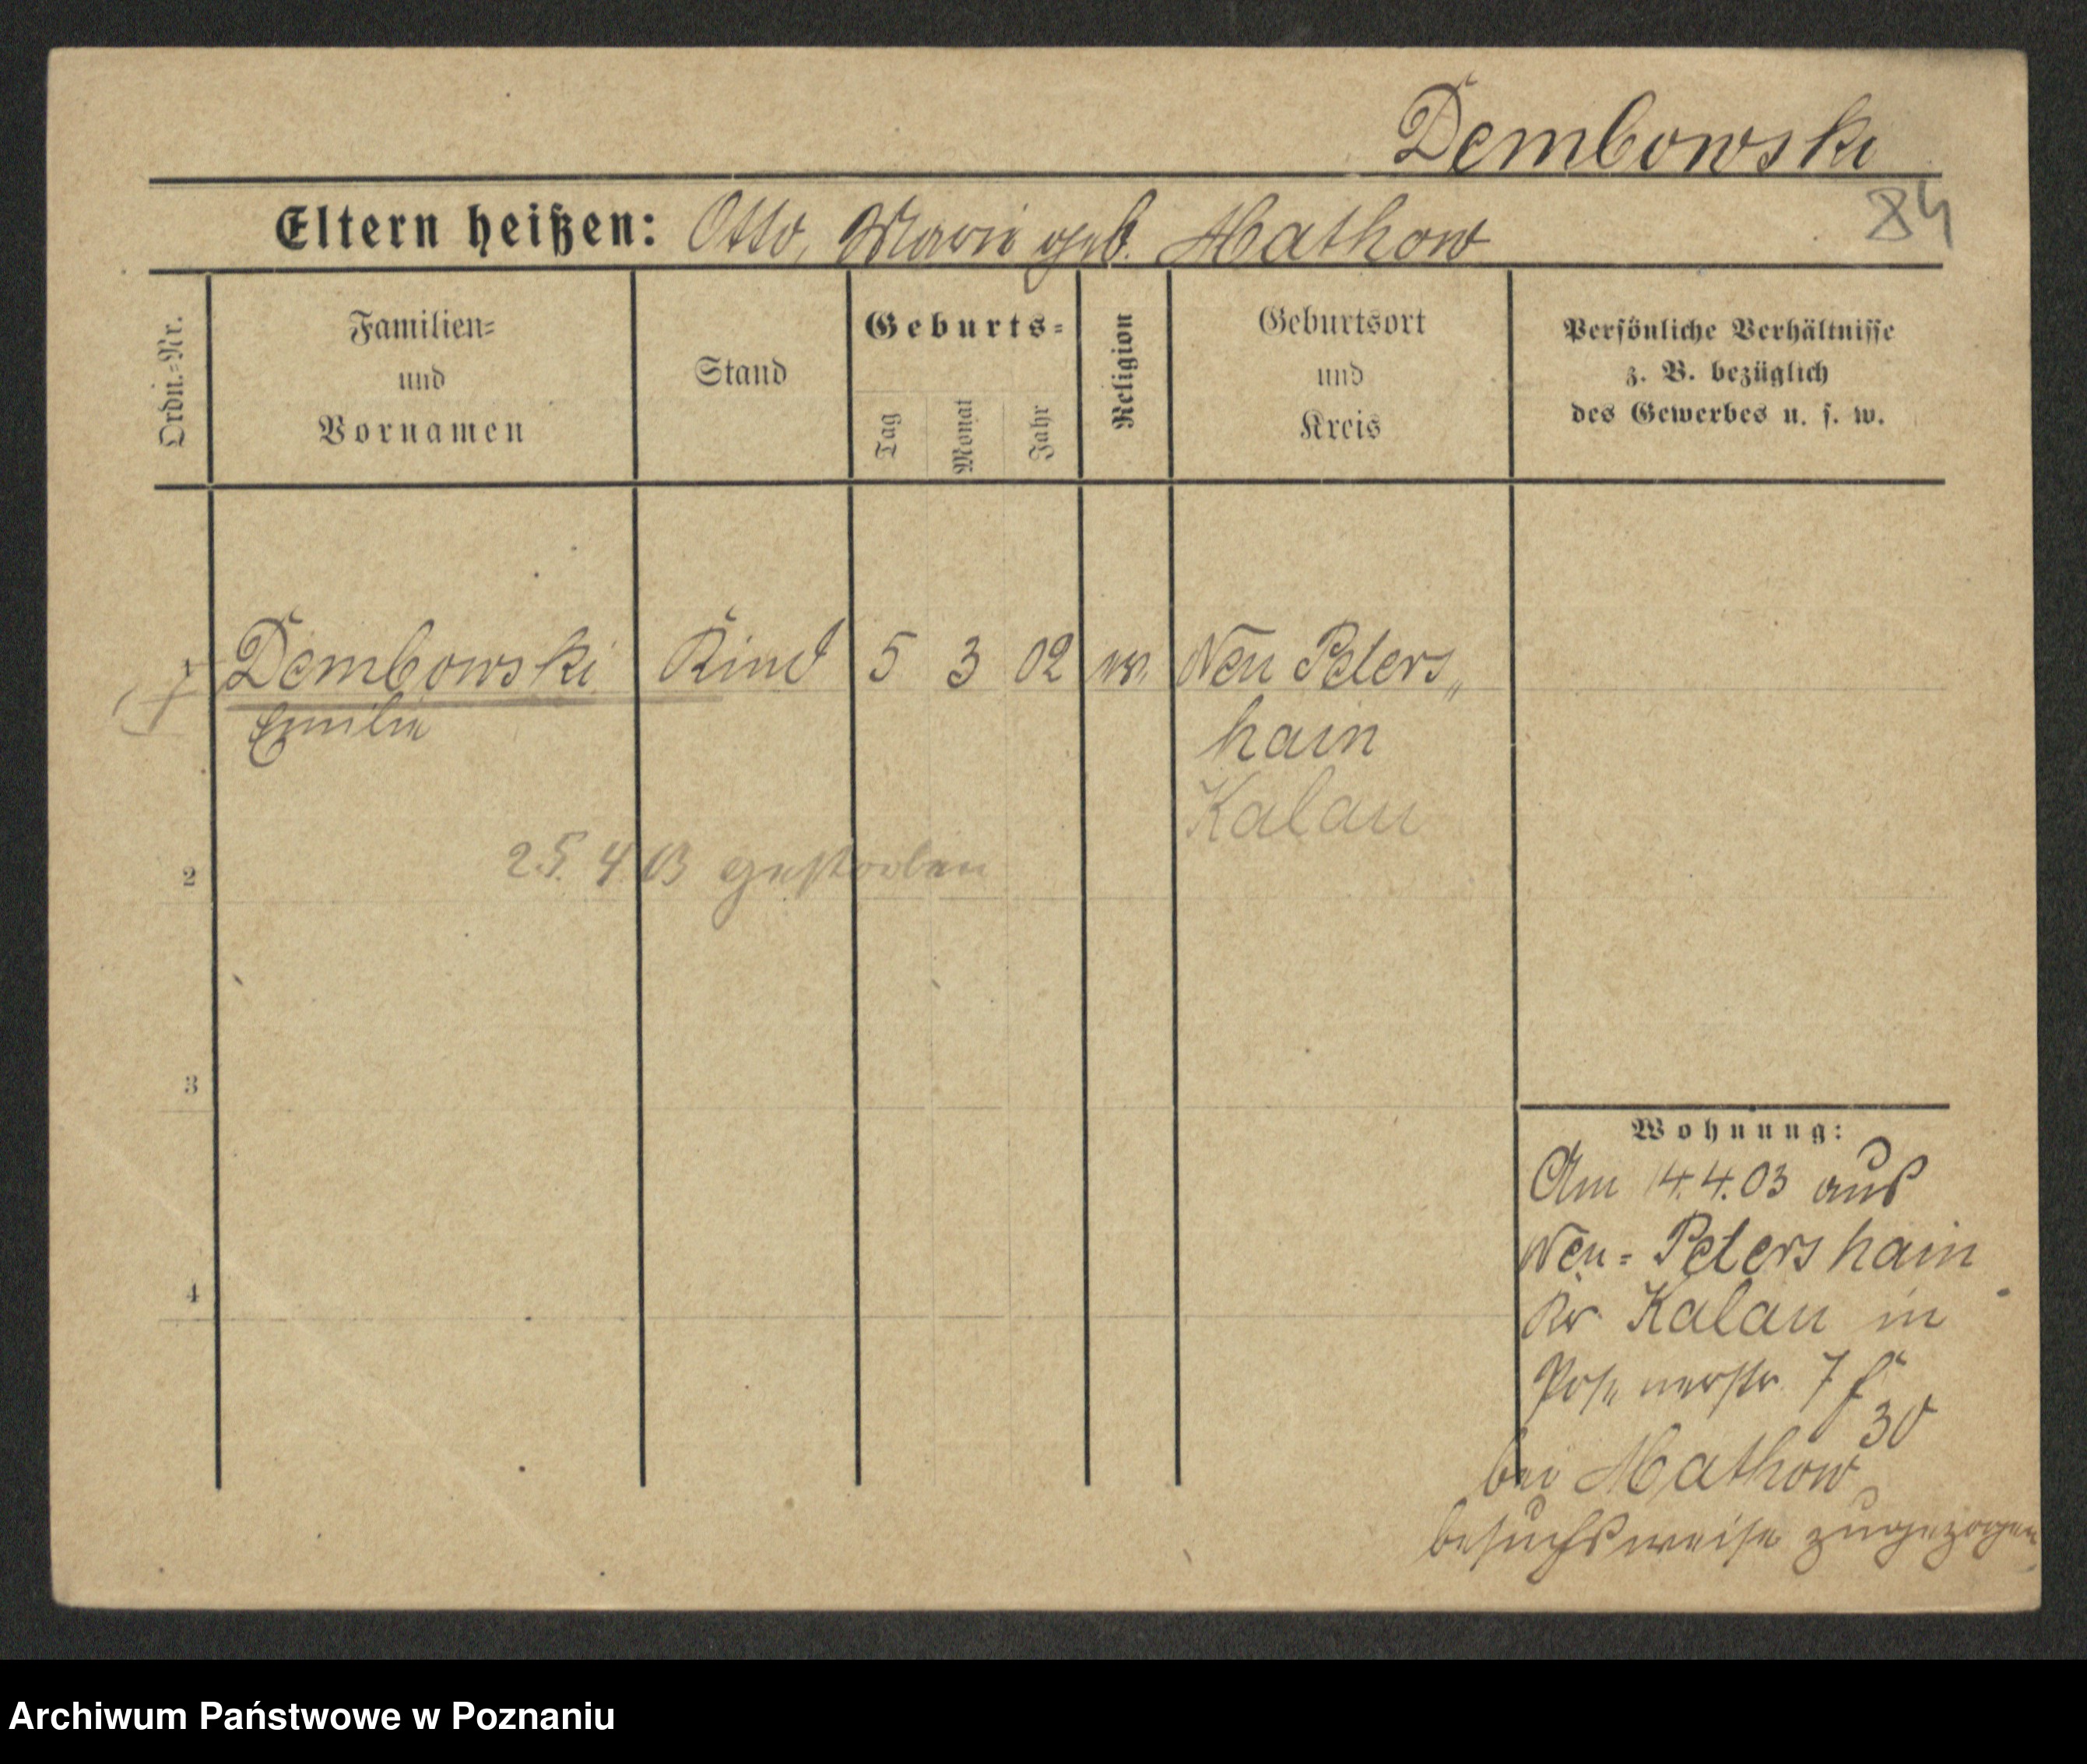 Dembowski
84
Eltern heißen: Otto, Marie geb. Mathow
Ordn.=Nr.
Familien=
und
Vornamen
Stand
Geburts=
Tag
Monat
Jahr
Religion
Geburtsort
und
Kreis
Persönliche Verhältnisse
z. B. bezüglich
des Gewerbes u. s. w.
1 Dembowski Kind 5 3 02 ev. Neu Peters„
Emilie hain
Kalau
25. 4 03 gestorben
2
3
4
Wohnung:
Am 14.4.03 aus
Neu=Petershain
Kr Kalau in
Posenerstr. 7
30
bei Mathow
besuchsweise zugezogen
Archiwum Państwowe w Poznaniu